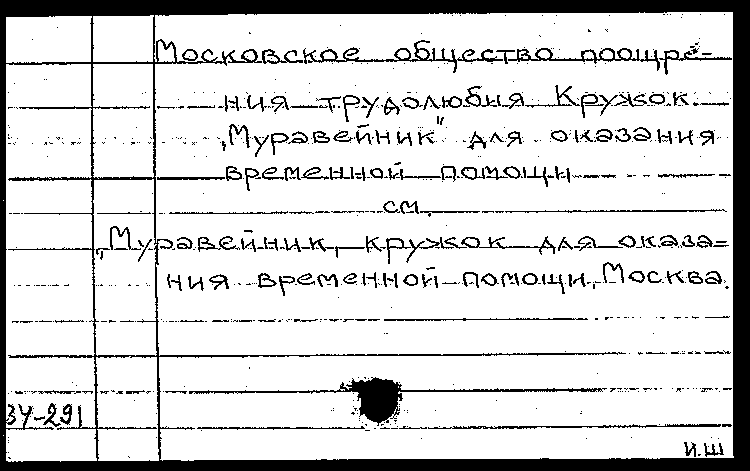 Московское общество поощре-
ния трудолюбия Кружок
„Муравейник" для оказания
временной помощи
см.
„Муравейник, кружок для оказа=
ния временной помощи, Москва.
34-291
И.Ш